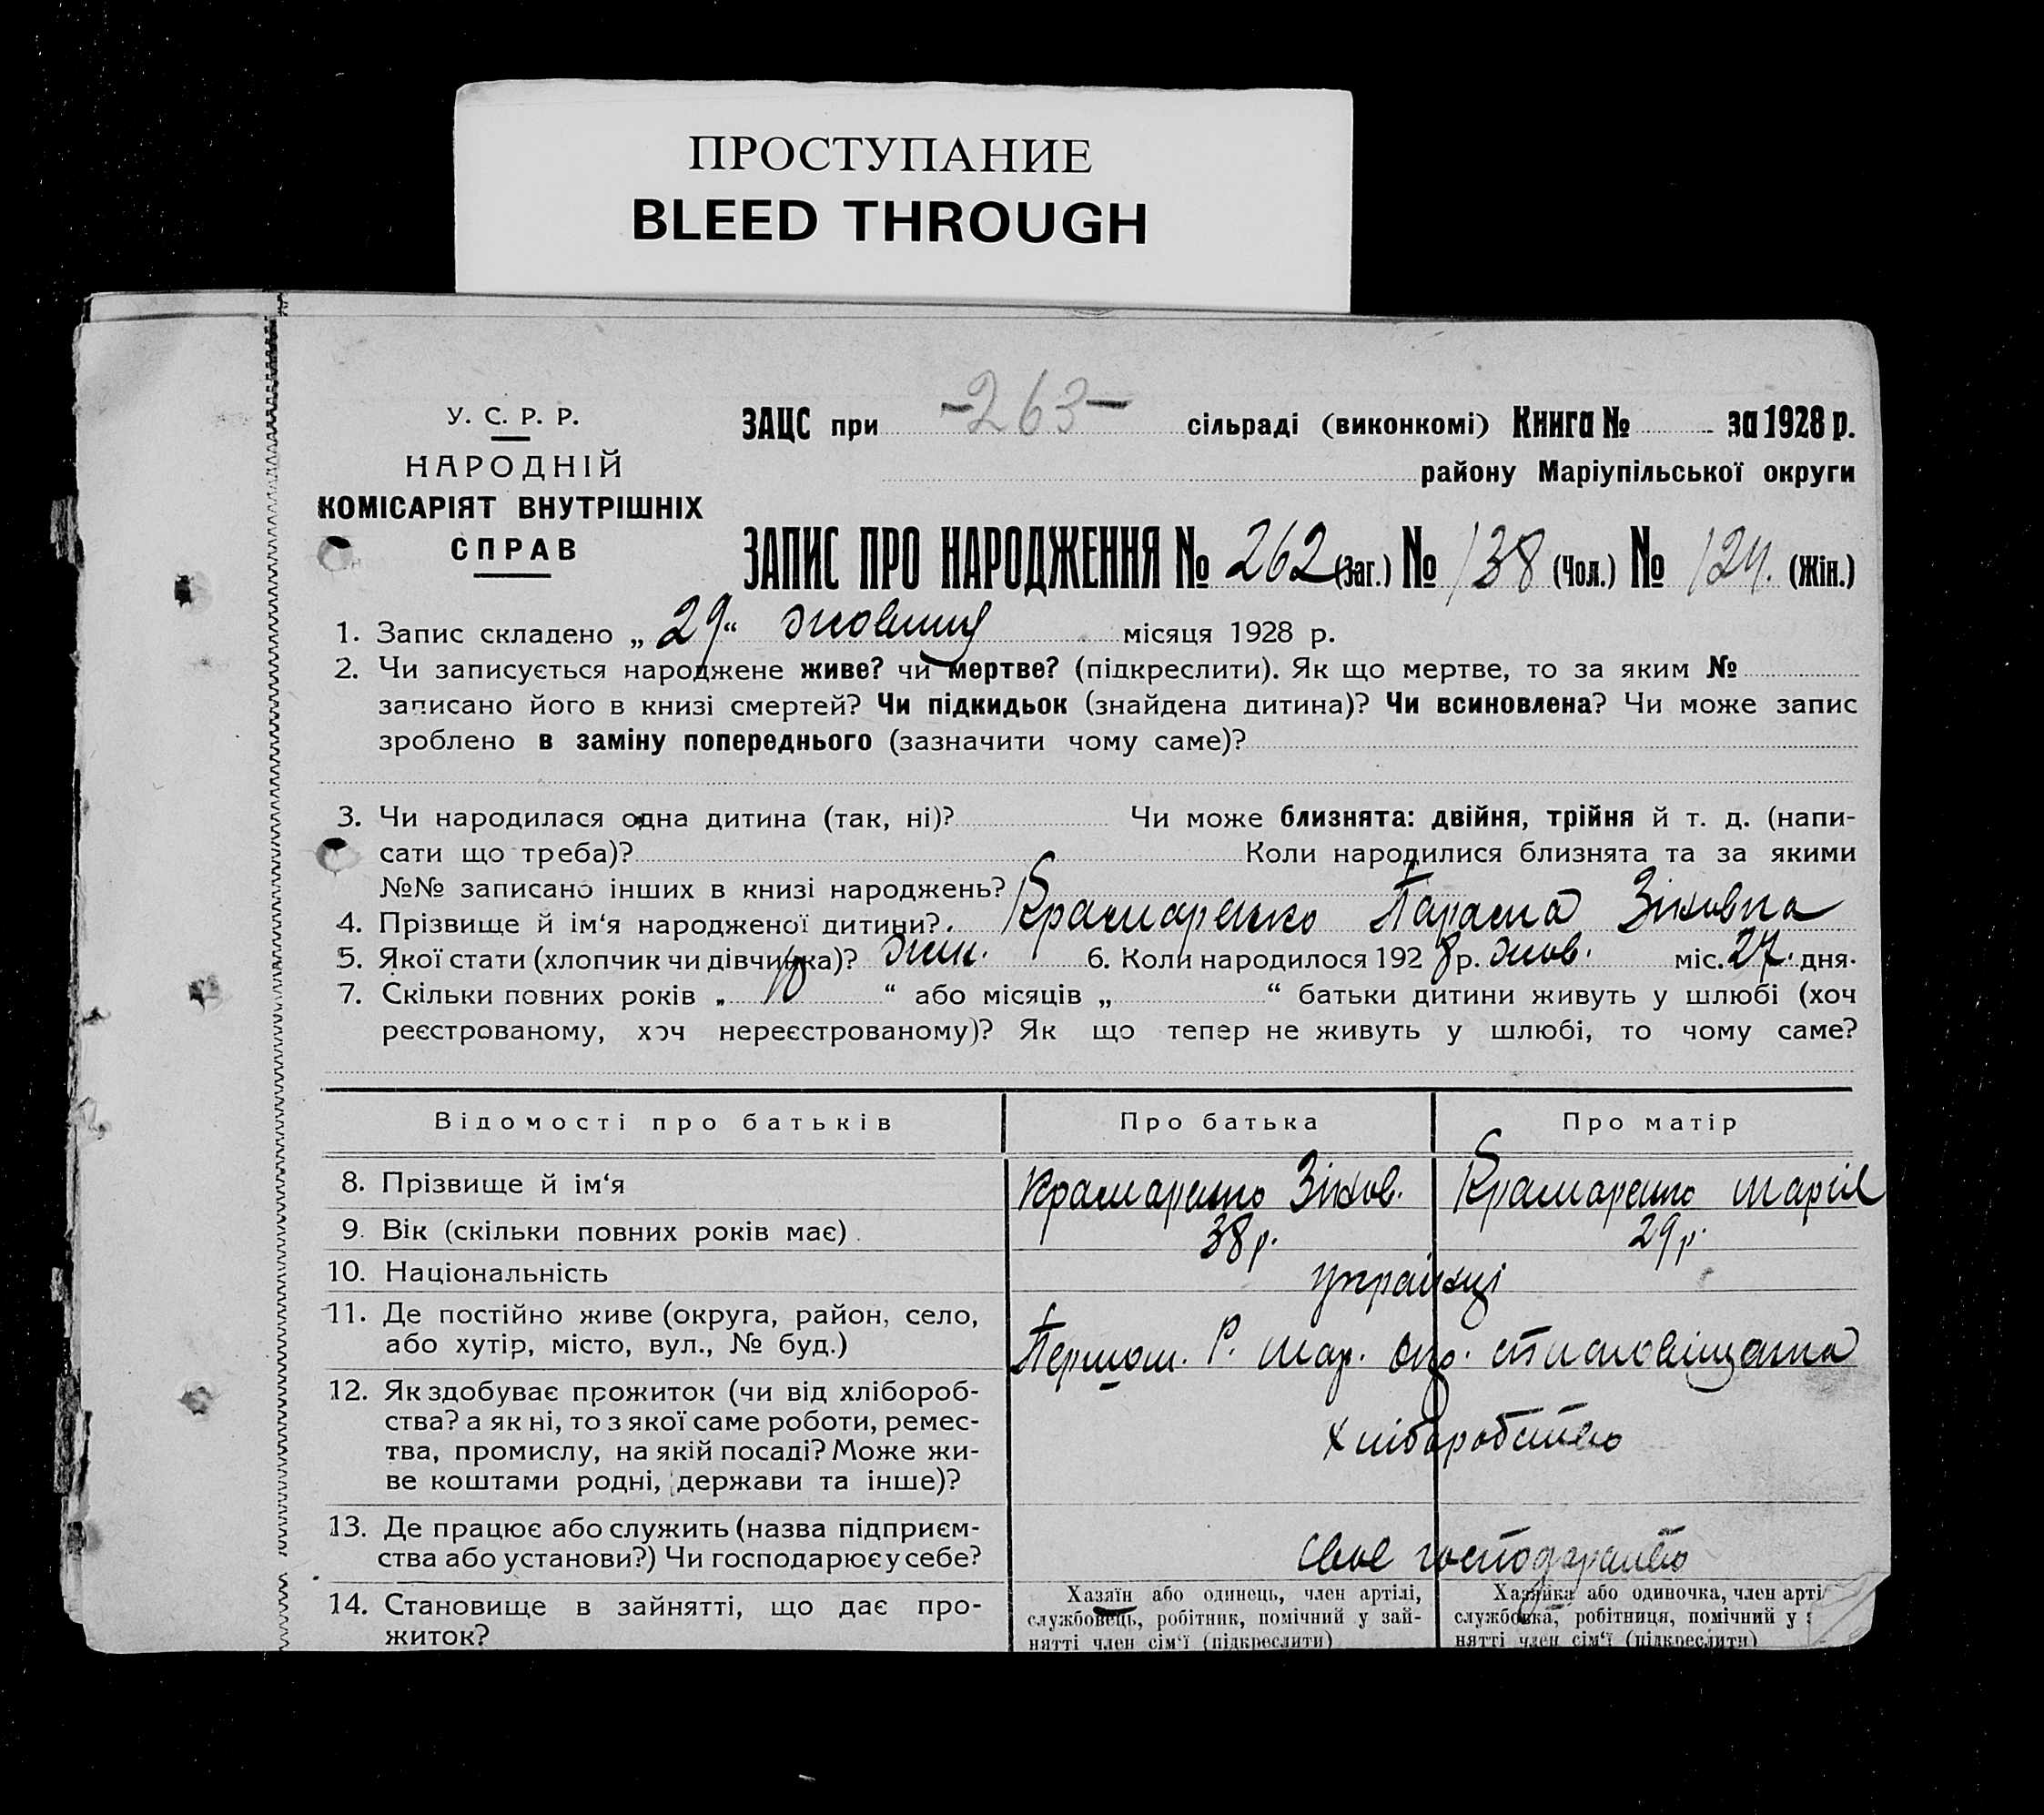 ПРОСТУПАНИЕ
BLEED THROUGH
У. С. Р. Р.
НАРОДНІЙ
КОМІСАРІЯТ ВНУТРІШНІХ
СПРАВ
ЗАЦС при -263- сільраді (виконкомі) Книга № за 1928 р.
району Маріупільської округи
ЗАПИС ПРО НАРОДЖЕННЯ № 262 (Заг.) № 138 (Чол.) № 124. (Жін.)
1. Запис складено „ 29 “ жовтня місяця 1928 р.
2. Чи записується народжене живе? чи мертве? (підкреслити). Як що мертве, то за яким №
записано його в книзі смертей? Чи підкидьок (знайдена дитина)? Чи всиновлена? Чи може запис
зроблено в заміну попереднього (зазначити чому саме)?
3. Чи народилася одна дитина (так, ні)? Чи може близнята: двійня, трійня й т. д. (напи-
сати що треба)? Коли народилися близнята та за якими
№№ записано інших в книзі народжень?
4. Прізвище й ім‘я народженої дитини? Крамаренко Параска Зіновна
5. Якої стати (хлопчик чи дівчинка)? жін. 6. Коли народилося 1928 р. жов. міс. 27. дня.
7. Скільки повних років „ 10 “ або місяців „ “ батьки дитини живуть у шлюбі (хоч
реєстрованому, хоч нереєстрованому)? Як що тепер не живуть у шлюбі, то чому саме?
Відомості про батьків Про батька Про матір
8. Прізвище й ім‘я Крамаренко Зінов. Крамаренко Марія
9. Вік (скільки повних років має). 38 р. 29 р.
10. Національність українці
11. Де постійно живе (округа, район, село,
або хутір, місто, вул., № буд.) Р. Мар. окр.
12. Як здобуває прожиток (чи від хлібороб-
ства? а як ні, то з якої саме роботи, ремес-
тва, промислу, на якій посаді? Може жи-
ве коштами родні, держави та інше)? хліборобство
13. Де працює або служить (назва підприєм-
ства або установи?) Чи господарює у себе? своє господарство
14. Становище в зайнятті, що дає про-
житок?
Хазяїн або одинець, член артілі,
службовець, робітник, помічний у зай-
нятті член сім‘ї (підкреслити)
Хазяйка або одиночка, член арті
службовка, робітниця, помічний у
нятті член сім‘ї (підкреслити)